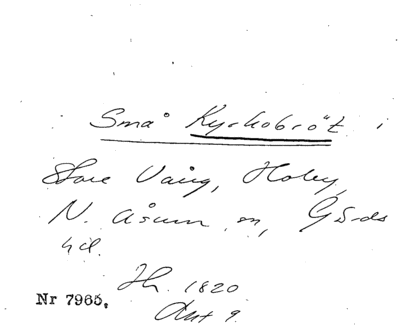 Små Kyrkobröt i
Store Vång, Hoby,
N. Åsum sn, Gärds
hd.
Hh. 1820
Nr 7965. Akt 9.